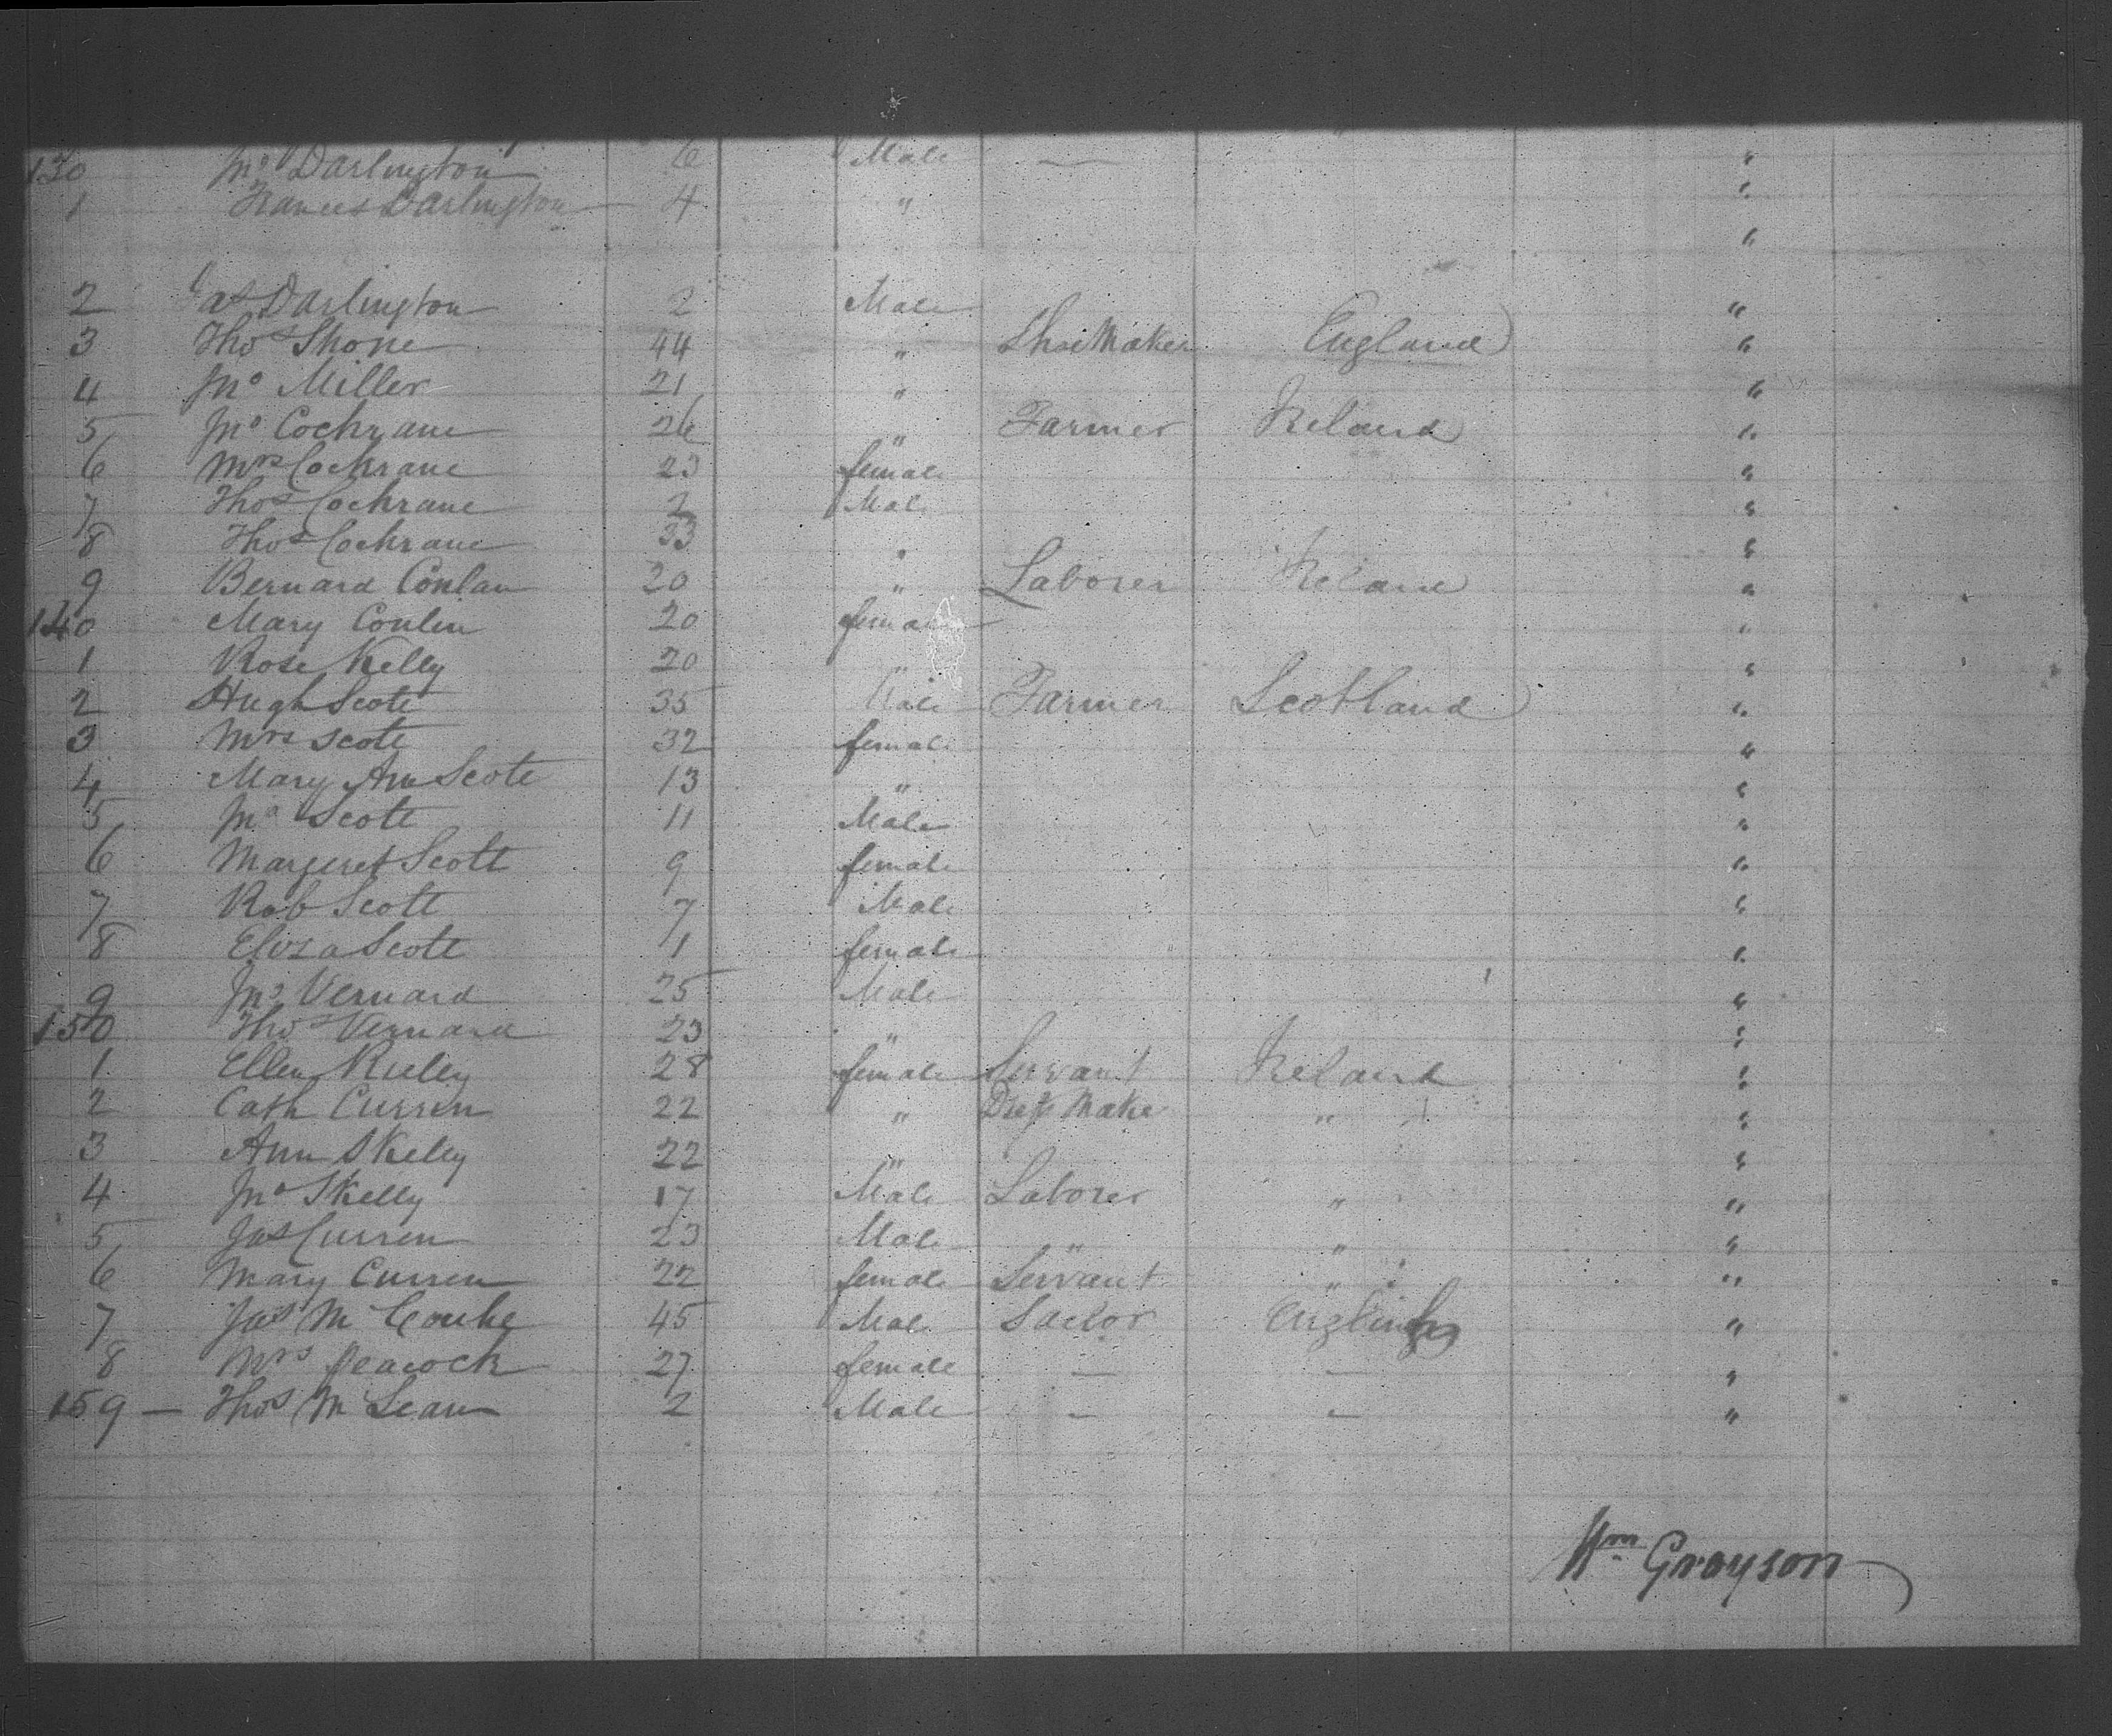 130 Jno Darlington 6 Male — "
1 Frances Darlington — 4 " "
"
2 Jas Darlington 2 Male "
3 Thos Shone 44 " Shoe Maker England "
4 Jno Miller 21 " "
5 Jno Cochrane 26 " Farmer Ireland "
6 Mrs Cochrane 23 female "
7 Thos Cochrane 2 Male "
8 Thos Cochrane 33 " "
9 Bernard Conlan 20 " Laborer Ireland "
140 Mary Conlen 20 female "
1 Rose Kelly 20 " "
2 Hugh Scott 35 Male Farmer Scotland "
3 Mrs Scott 32 female "
4 Mary Ann Scott 13 " "
5 Jno Scott 11 Male "
6 Margeret Scott 9 female "
7 Rob Scott 7 Male "
8 Eliza Scott 1 female "
9 Jno Vernard 25 Male "
150 Thos Vernard 23 " "
1 Ellen Rieley 28 female Servant Ireland "
2 Cath Curren 22 " Dress Make " "
3 Ann Skelly 22 " "
4 Jno Skelly 17 Male Laborer " "
5 Jas Curren 23 Male " " "
6 Mary Curren 22 female Servant " "
7 Jas 45 Male Sailor "
8 Mrs Peacock 27 female — — "
159 — Thos McLean 2 Male — — "
Wm Grayson